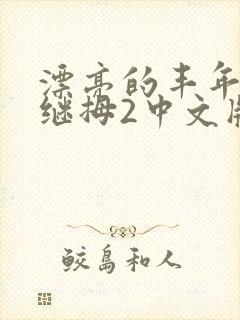 漂亮的丰年
继拇2中文版
鲛岛和人